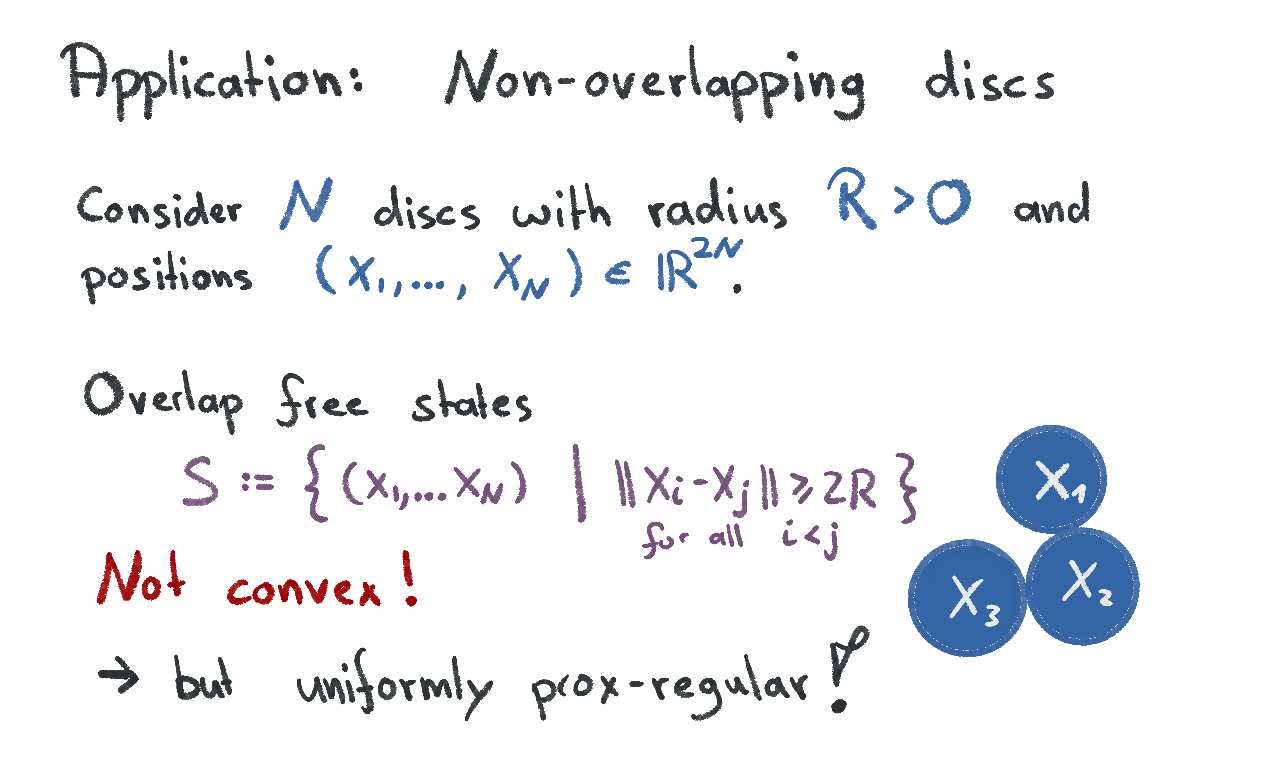 Application: Non-overlapping discs
Consider N discs with radius R > 0 and
positions (X₁,..., X_N) ∈ ℝ²ᴺ.
Overlap free states
S := { (X₁,... X_N) | ||X_i - X_j|| ⩾ 2R }
for all i < j
Not convex!
→ but uniformly prox-regular!
X₁
X₂
X₃